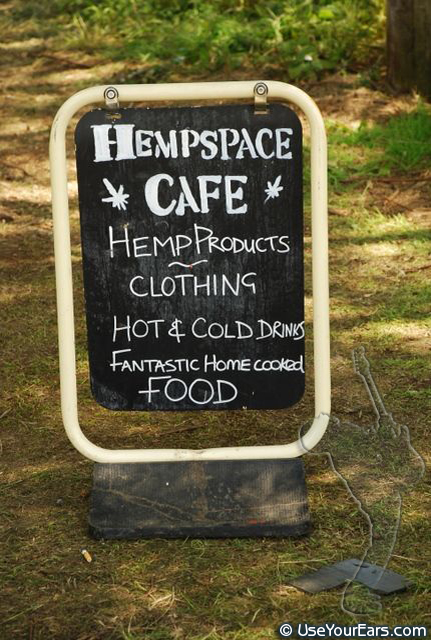 HEMPSPACE
CAFE
HEMP PRODUCTS
~
CLOTHING
HOT & COLD DRINKS
FANTASTIC HOME COOKED
FOOD
© UseYourEars.com